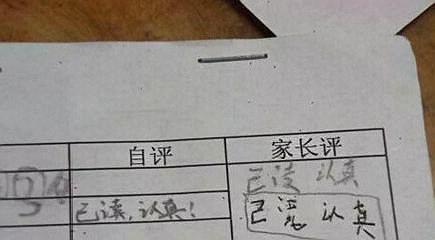 自评 家长评
已读 认真
已读，认真！ 已读 认真